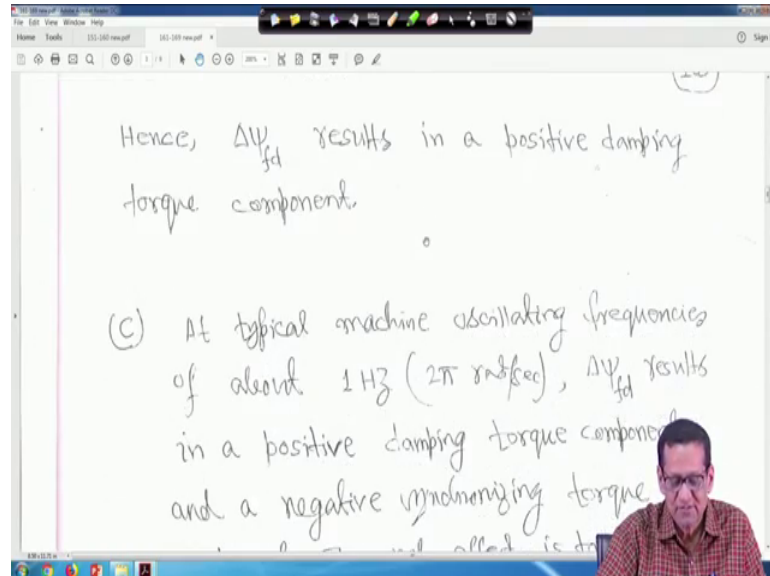 161-169 new.pdf - Adobe Acrobat Reader DC
File Edit View Window Help
Home Tools 151-160 new.pdf 161-169 new.pdf × Sign
Hence, Δψfd results in a positive damping
torque component.
(C) At typical machine oscillating frequencies
of about 1 HZ (2π rad/sec), Δψfd results
in a positive damping torque component
and a negative synchronizing torque
8.50 x 11.71 in